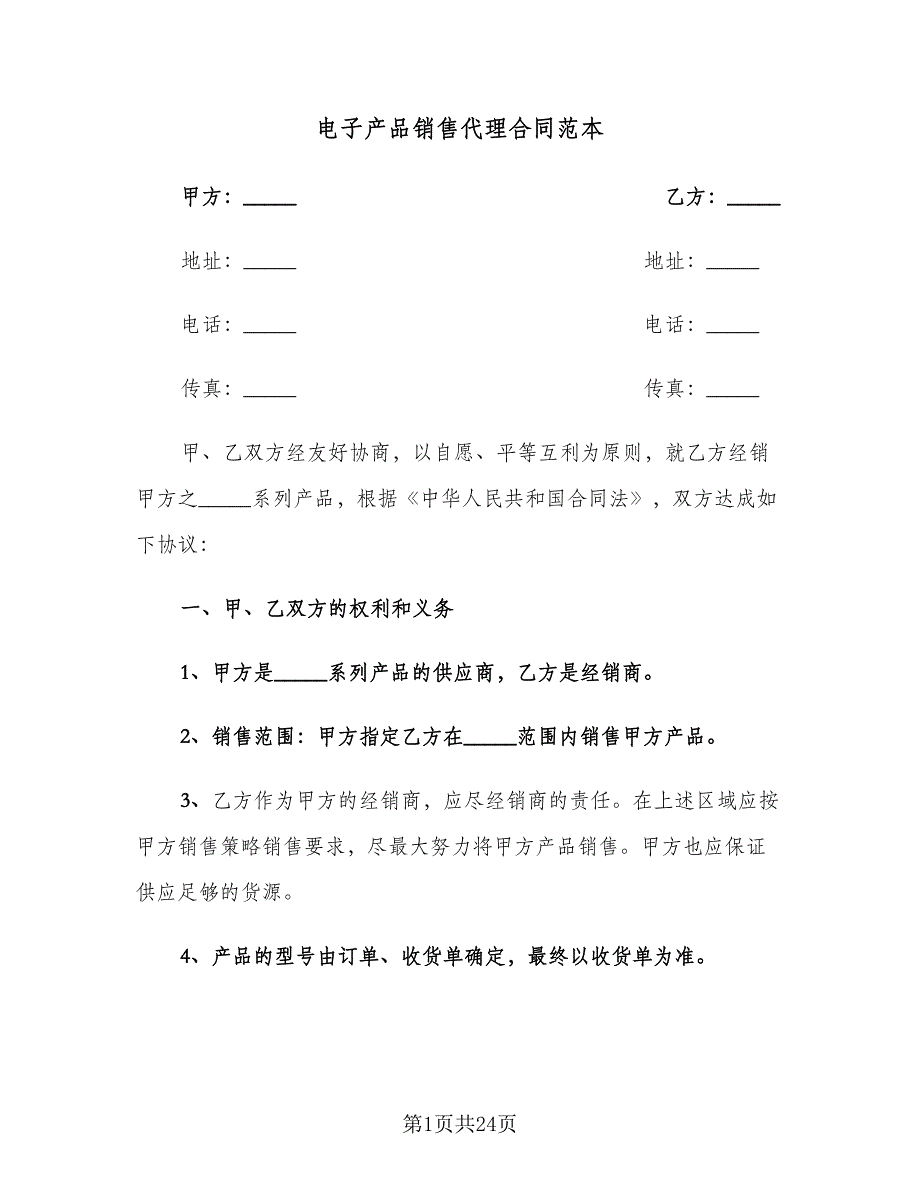 电子产品销售代理合同范本
甲方：_____ 乙方：_____
地址：_____ 地址：_____
电话：_____ 电话：_____
传真：_____ 传真：_____
甲、乙双方经友好协商，以自愿、平等互利为原则，就乙方经销
甲方之_____系列产品，根据《中华人民共和国合同法》，双方达成如
下协议：
一、甲、乙双方的权利和义务
1、甲方是_____系列产品的供应商，乙方是经销商。
2、销售范围：甲方指定乙方在_____范围内销售甲方产品。
3、乙方作为甲方的经销商，应尽经销商的责任。在上述区域应按
甲方销售策略销售要求，尽最大努力将甲方产品销售。甲方也应保证
供应足够的货源。
4、产品的型号由订单、收货单确定，最终以收货单为准。
第1页共24页